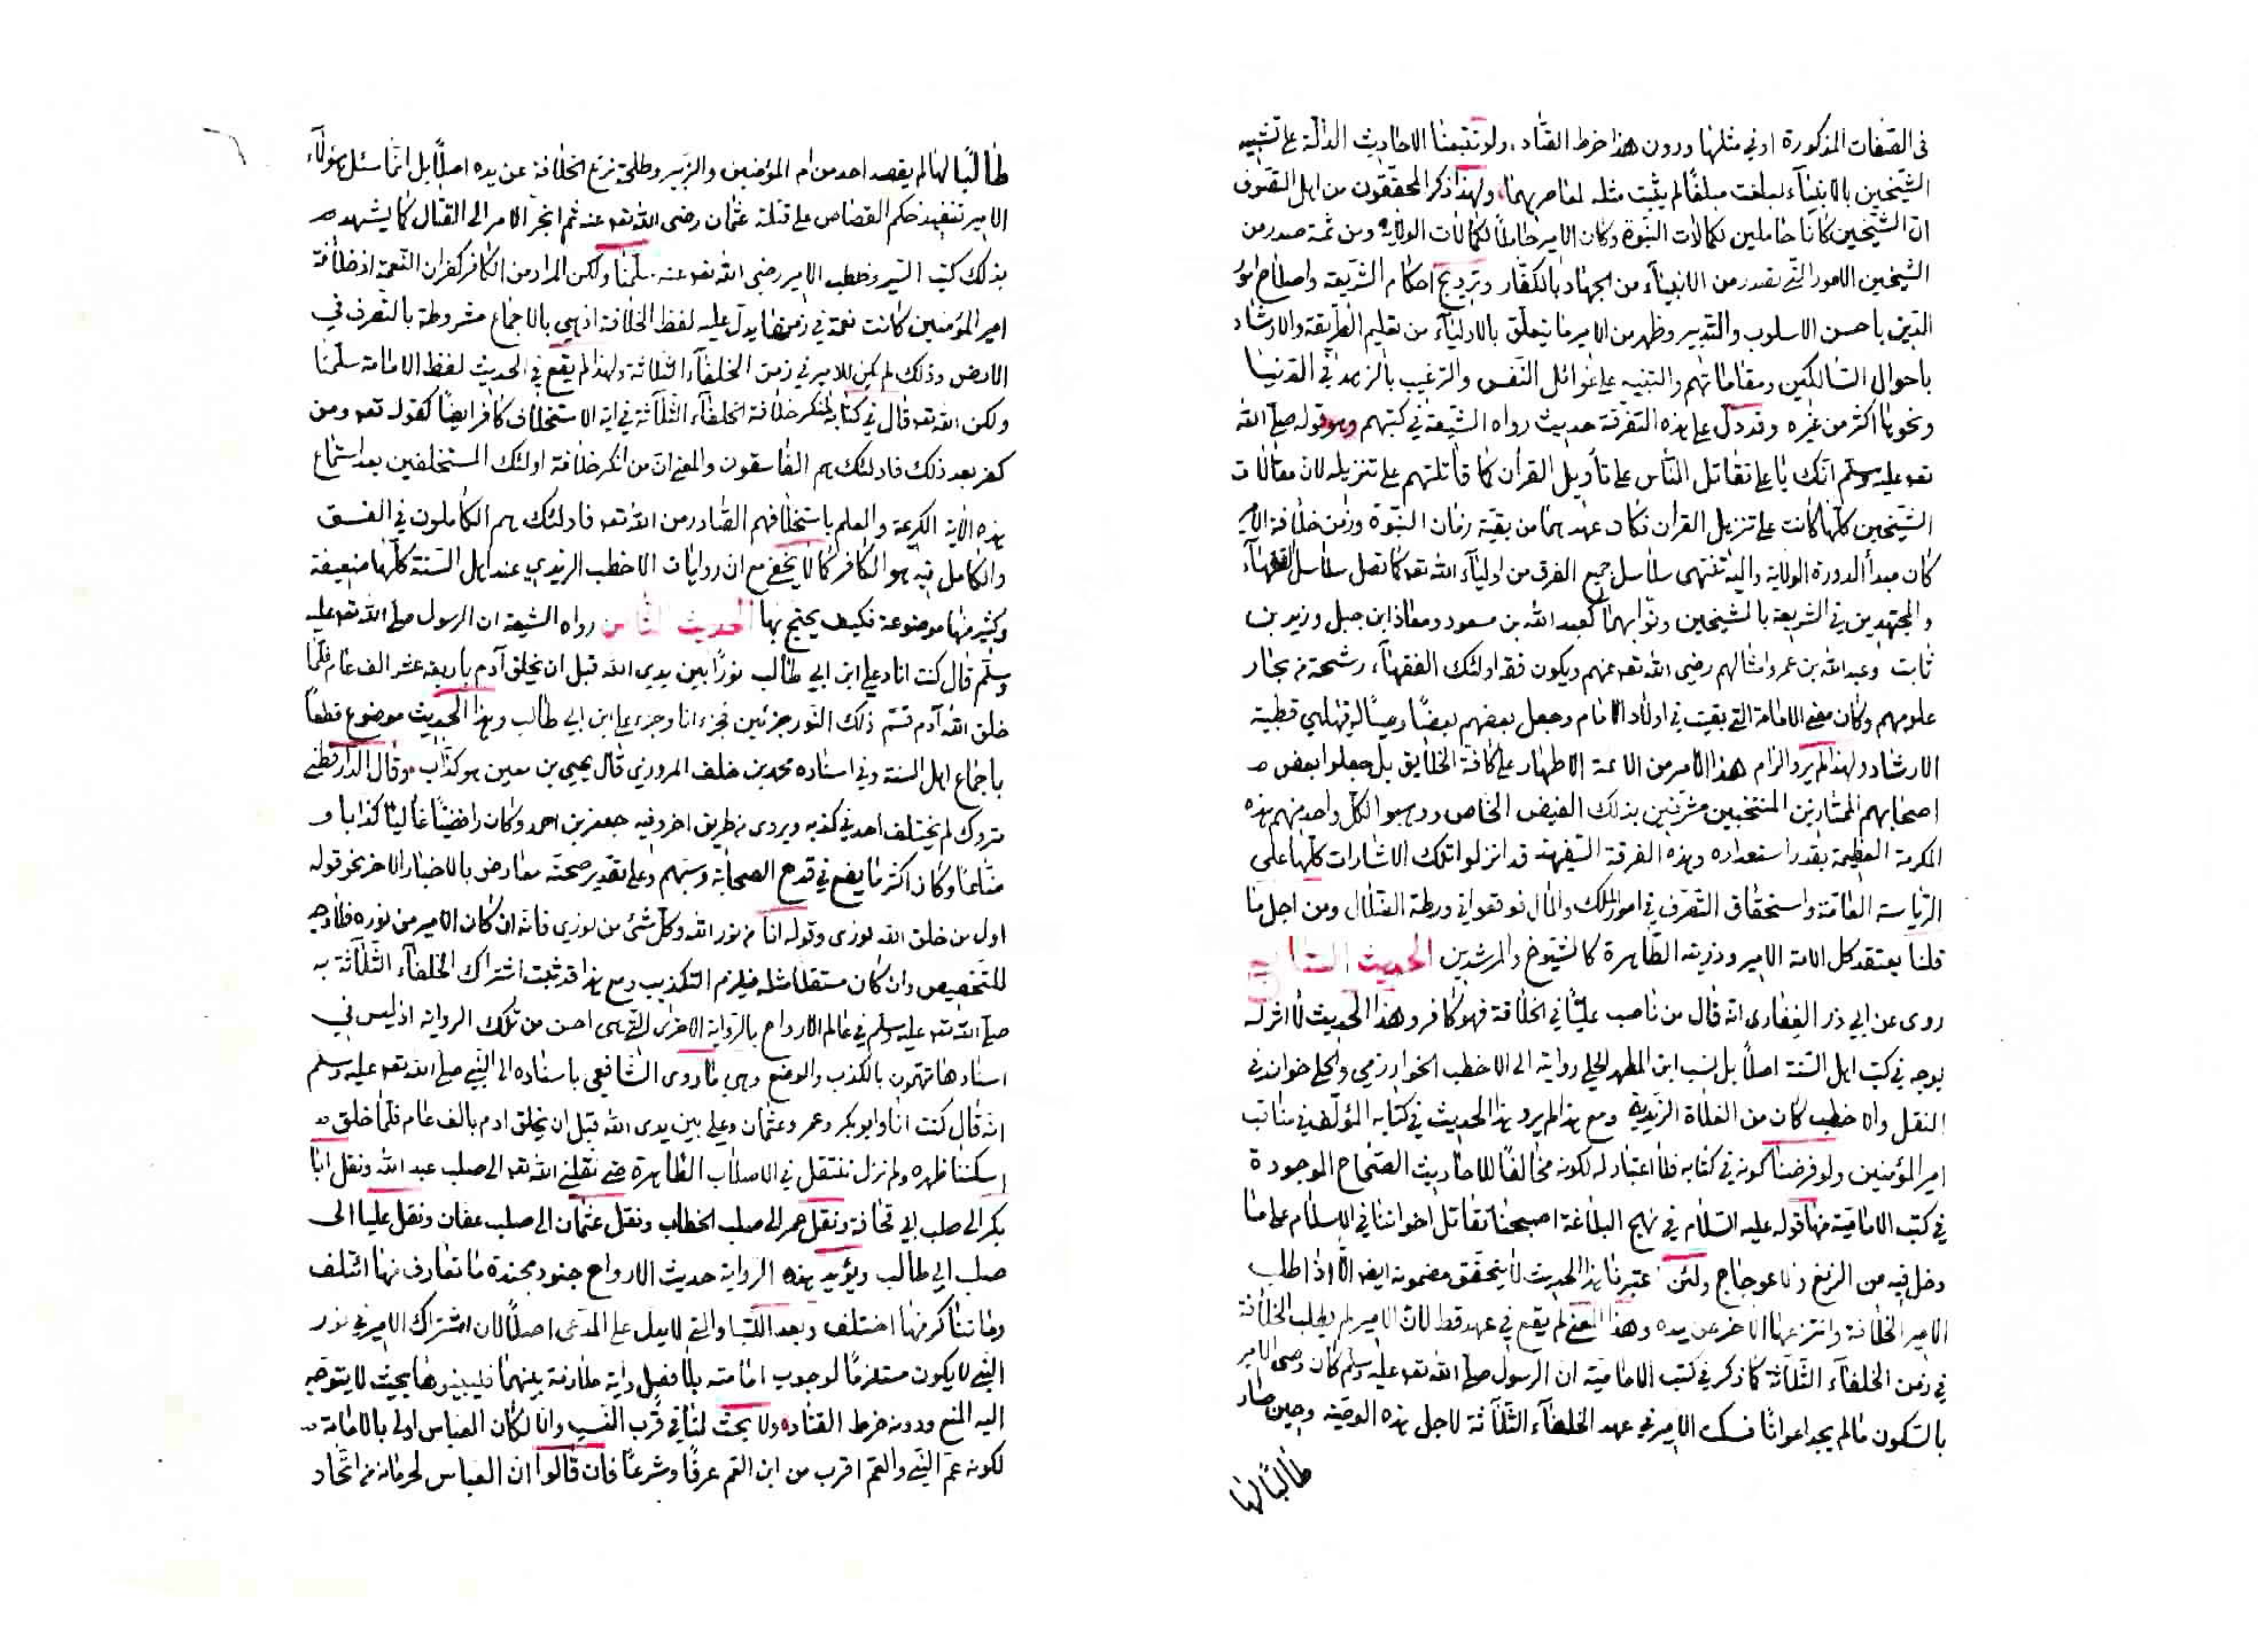 فى الصّفات المذكورة او فى مثلها ودون هذا خرط القتاد، ولو تتبعنا الاحاديث الدّالّة على تشبيه
الشّيخين بالانبيآء لبلغت مبلغًا لم يثبت مثله لمعاصريهما، ولهذا ذكر المحققون من اهل التصّوف
انّ الشّيخين كانا حاملين لكمالات النّبوّة وكان الامير حاملًا لكمالات الولاية ومن ثمة صدر من
الشّيخين الامور الّتي تصدر من الانبيآء من الجهاد بالكفّار وترويج احكام الشّريعة واصلاح امور
الدّين باحسن الاسلوب والتدبير وظهر من الامير ما يتعلّق بالاوليآء من تعليم الطّريقة والارشاد
باحوال السّالكين ومقاماتهم والتنبيه على غوائل النّفس والترغيب بالزهد في الدّنيا
ونحوها اكثر من غيره وقد دلّ على هذه التفرقة حديث رواه الشّيعة في كتبهم وهو قوله صلّى الله
تعه عليه وسلّم انّك يا علي تقاتل النّاس على تأويل القرآن كما قاتلتهم على تنزيله لان مقاتلات
الشّيخين كلّها كانت على تنزيل القرآن فكان عهدهما من بقيّة زمان النّبوّة وزمن خلافة الامير
كان مبدأ لدورة الولاية واليه تنتهى سلاسل جميع الفرق من اوليآء الله تعه كما تصل سلاسل الفقهآء
والمجتهدين في الشريعة بالشيخين ونوّابهما كعبد الله بن مسعود ومعاذ ابن جبل وزيد بن
ثابت وعبد الله بن عمر وامثالهم رضى الله تعه عنهم ويكون فقه اولئك الفقهآء رشحة من بحار
علومهم وكان معنى الامامة التي بقيت في اولاد الامام وجعل بعضهم بعضًا وصيًا له فيها هي قطبية
الارشاد ولهذا لم يرو الزام هذا الامر من الائمة الاطهار على كافة الخلايق بل جعلوا بعض
اصحابهم الممتازين المنتخبين مشرّفين بذلك الفيض الخاص ووهبوا لكلّ واحد منهم هذه
المكرمة العظيمة بقدر استعداده وهذه الفرقة السّفيهة قد انزلوا تلك الاشارات كلّها على
الرّياسة العامّة واستحقاق التّصرّف في امور الملك والمال فوقعوا في ورطة الضلال ومن اجل ما
قلنا يعتقد كل الامة الامير وذريته الطّاهرة كالشيوخ والمرشدين الحديث السّابع
روى عن ابي ذر الغفارى انّه قال من ناصب عليًّا في الخلافة فهو كافر وهذا الحديث لا اثر له
بوجه في كتب اهل السّنة اصلًا بل نسب ابن المطهر الحلي رواية الى الاخطب الخوارزمي والحلي خوان في
النقل والاخطب كان من الغلاة الزيدية ومع هذا لم يرو هذا الحديث في كتابه المؤلّف في مناقب
امير المؤمنين ولو فرضنا كونه في كتابه فلا اعتبار له لكونه مخالفًا للاحاديث الصّحاح الموجودة
في كتب الاماميّة منها قوله عليه السّلام في نهج البلاغة اصبحنا نقاتل اخواننا في الاسلام على ما
دخل فيه من الزيغ والاعوجاج ولئن اعتبرنا هذا الحديث لا يتحقق مضمونه ايضا الّا اذا طلب
الامير الخلافة وانتزعها الآخر عن يده وهذا المعنى لم يقع في عهد قط لانّ الامير لم يطلب الخلافة
في زمن الخلفآء الثلاثة كما ذكر في كتب الاماميّة ان الرسول صلّى الله تعه عليه وسلّم كان وصى الامير
بالسّكون ما لم يجد اعوانًا فسكت الامير في عهد الخلفآء الثّلاثة لاجل هذه الوصيّة وحين صار
طالبًا لها
طالبًا لها لم يقصد احد من ام المؤمنين والزّبير وطلحة نزع الخلافة عن يده اصلًا بل انّما سئل هؤلآء
الامير تنفيذ حكم القصاص على قتلة عثمان رضى الله تعه عنه ثم انجرّ الامر الى القتال كما يشهد
بذلك كتب السّير وخطب الامير رضى الله تعه عنه، سلّمنا ولكن المراد من الكافر كفران النّعمة اذ خلافة
امير المؤمنين كانت نعمة في زمنها يدلّ عليه لفظ الخلافة اذ هي بالاجماع مشروطة بالتّصرف في
الارض وذلك لم يكن للامير في زمن الخلفآء الثلاثة ولهذا لم يقع في الحديث لفظ الامامة سلّمنا
ولكن الله تعه قال في كتابه لمنكر خلافة الخلفآء الثّلاثة في آية الاستخلاف كافر ايضًا كقوله تعه ومن
كفر بعد ذلك فاولئك هم الفاسقون والمعنى انّ من انكر خلافة اولئك المستخلفين بعد استماع
هذه الآية الكريمة والعلم باستخلافهم الصّادر من الله تعه فاولئك هم الكاملون في الفسق
والكامل فيه هو الكافر كما لا يخفى مع ان روايات الاخطب الزيدي عند اهل السّنة كلّها ضعيفة
وكثير منها موضوعة فكيف يحتج بها الحديث الثّامن رواه الشيعة ان الرسول صلّى الله تعه عليه
وسلّم قال كنت انا وعلي ابن ابي طالب نورًا بين يدي الله قبل ان يخلق آدم باربعة عشر الف عام فلمّا
خلق الله آدم قسّم ذلك النّور جزئين فجزء انا وجزء علي ابن ابي طالب وهذا الحديث موضوع قطعًا
باجماع اهل السنة وفي اسناده محمد بن خلف المروزي قال يحيي بن معين هو كذّاب، وقال الدّارقطني
متروك لم يختلف احد في كذبه ويروى من طريق اخر وفيه جعفر بن احمد وكان رافضيًّا غاليًا كذابا و
ضّاعًا وكان اكثر ما يضع في قدح الصحابة وسبّهم وعلى تقدير صحته معارض بالاخبار الآخر نحو قوله
اول من خلق الله نوزى وقوله انا من نور الله وكلّ شئ من نوري فانّه ان كان الامير من نوره فلا وجه
للتخصيص وان كان مستقلا مثله فيلزم التكذيب ومع هذا قد ثبت اشتراك الخلفآء الثّلاثة به
صلّى الله تعه عليه وسلم في عالم الارواح بالرّواية الاخرى الّتي هى احسن من تلك الرواية اذ ليس في
اسنادها متّهمون بالكذب والوضع وهي ما روى الشّافعي باسناده الى النّبي صلّى الله تعه عليه وسلم
انه قال كنت انا وابو بكر وعمر وعثمان وعلي بين يدى الله قبل ان يخلق ادم بالف عام فلمّا خلق
اسكننا ظهره ولم نزل ننتقل في الاصلاب الطّاهرة حتى نقلني الله تعه الى صلب عبد الله ونقل ابا
بكر الى صلب ابي قحافة ونقل عمر الى صلب الخطاب ونقل عثمان الى صلب عفان ونقل عليا الى
صلب ابي طالب ويؤيد هذه الرواية حديث الارواح جنود مجندة ما تعارف منها ائتلف
وما تناكر منها اختلف وبعد اللّتيا والتي لا يدل على المدّعى اصلًا لان اشتراك الامير في نور
النّبي لا يكون مستلزمًا لوجوب امامته بلا فصل واية ملازمة بينهما فليبيّنوها بحيث لا يتوجّه
اليه المنع ودونه خرط القتاد، ولا بحث لنا في قرب النّسب والّا لكان العباس اولى بالامامة
لكونه عمّ النّبي والعّم اقرب من ابن العّم عرفًا وشرعًا فان قالوا انّ العباس لحرمانه من اتّحاد